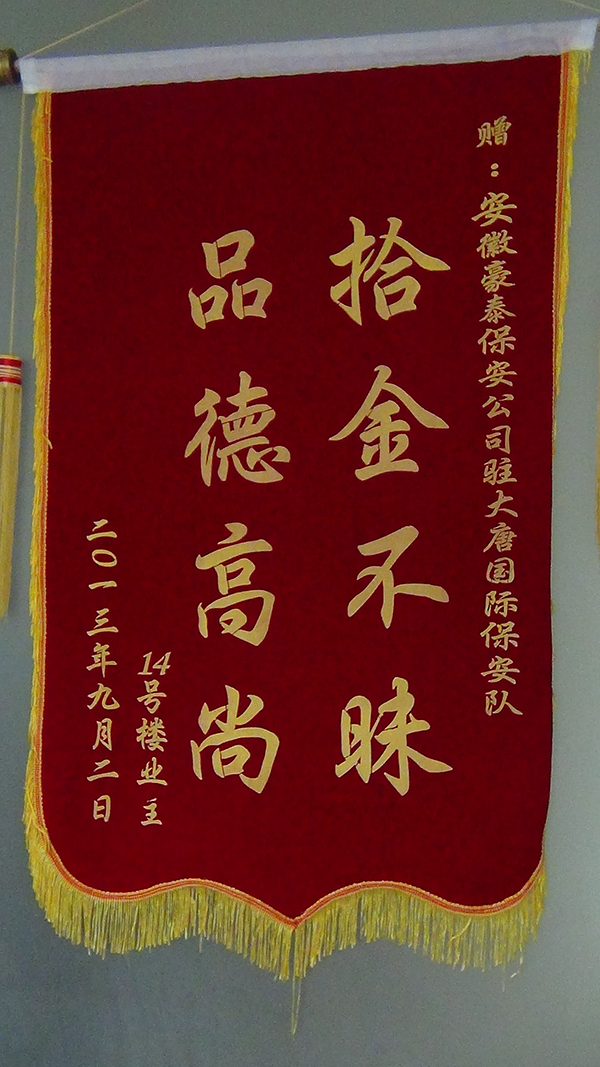 赠：安徽豪泰保安公司驻大唐国际保安队
拾金不昧
品德高尚
14号楼业主
二〇一三年九月二日